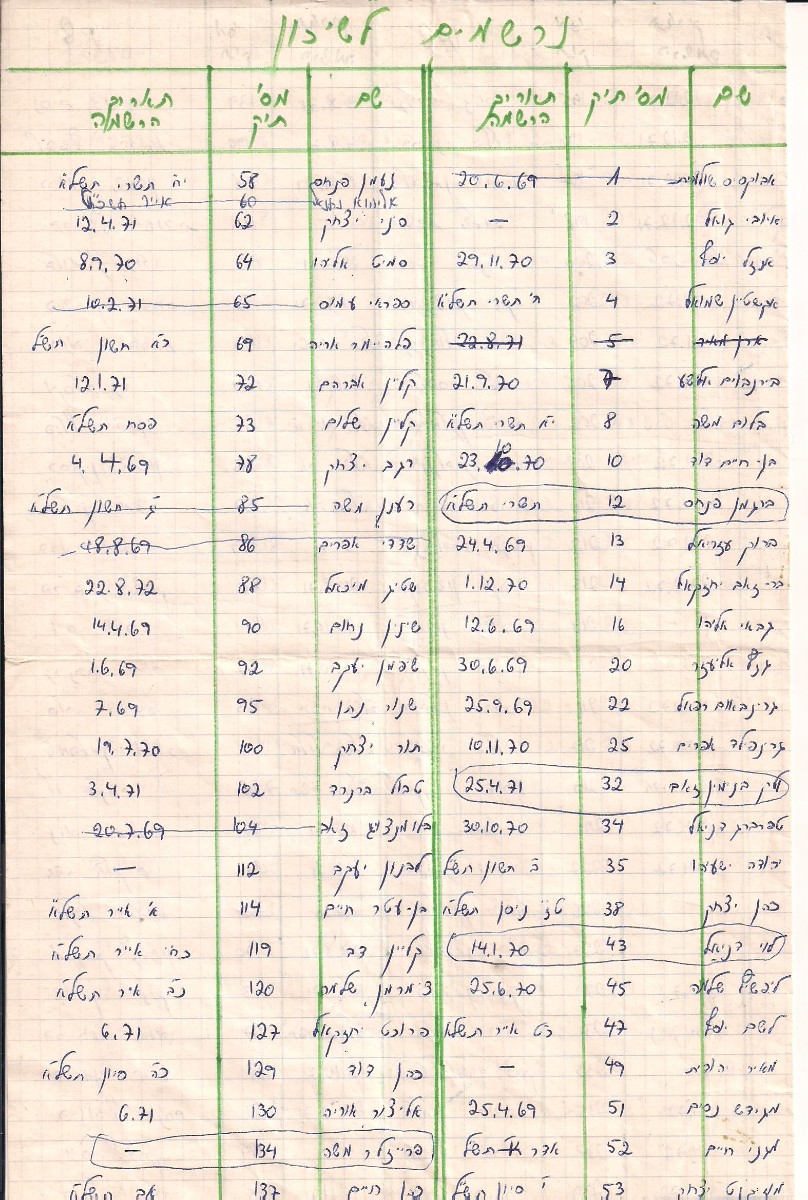 נרשמים לשיכון
שם מס' תיק תאריך הרשמה שם מס' תיק תאריך הרשמה
אבוקסיס שולמית 1 20.6.69 נעמן פנחס 58 י"ח תשרי תשל"א
60 אייר
איובי יואל 2 — סיני יצחק 62 12.4.71
אנגל יוסף 3 29.11.70 סמיט אליהו 64 8.9.70
אקשטיין שמואל 4 ח' תשרי תשל"א ספראי עמוס 65 10.2.71
ארן מאיר 5 22.8.71 פלהיימר אריה 69 כ"א חשון תש"ל
בירנבוים אלישע 7 21.9.70 קליין אברהם 72 12.1.71
בלום משה 8 י"א תשרי תשל"א קליין שלום 73 פסח תשל"א
בן חיים דוד 10 23.10.70 רגב יצחק 78 4.4.69
ברגמן פנחס 12 תשרי תשל"א רענן משה 85 חשון תשל"א
ברוק עזריאל 13 24.4.69 שדדי אפרים 86 18.8.69
בר-זאב יחזקאל 14 1.12.70 שטיג מיכאל 88 22.8.72
גבאי אליהו 16 12.6.69 שינין נחום 90 14.4.69
אליעזר 20 30.6.69 שיפמן יעקב 92 1.6.69
גרינבאום רפאל 22 25.9.69 שנור נתן 95 7.69
גרינפלד אפרים 25 10.11.70 תור יצחק 100 19.7.70
בנימין זאב 32 25.4.71 טבול ברנרד 102 3.4.71
טפרברג דניאל 34 30.10.70 בלומנצויג זאב 104 20.7.69
יהודה ישעיהו 35 כ' חשון תש"ל לבנון יעקב 112 —
כהן יצחק 38 ט"ז ניסן תשל"א בן-עטר חיים 114 א' אייר תשל"א
לוי דניאל 43 14.1.70 קליין דב 119 כ"ח אייר תשל"א
ליפשיץ שלמה 45 25.6.70 צימרמן שלמה 120 כ"ב איר תשל"א
לשם יוסף 47 כ"ט אייר תשל"א פרוכט יחזקאל 127 6.71
מאיר יהודית 49 — כהן דוד 129 כ"ה סיון תשל"א
מגידש נסים 51 25.4.69 אליצור אוריה 130 6.71
מגני חיים 52 אדר תש"ל פרייזלר משה 134 —
יצחק 53 י' סיון תש"ל כהן חיים 137 אב תשל"א